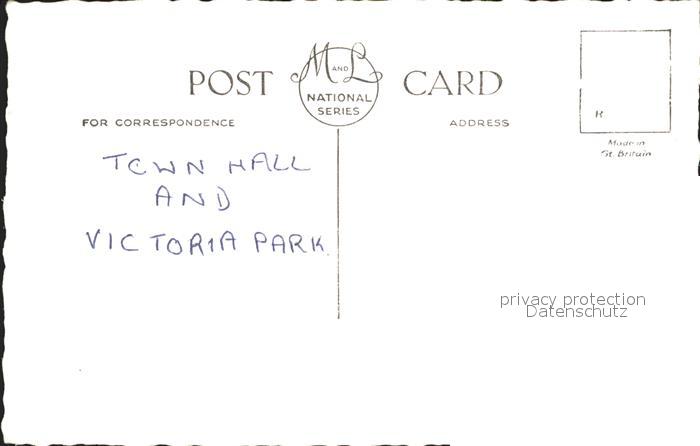 POST M AND L CARD
NATIONAL
SERIES
FOR CORRESPONDENCE
ADDRESS
R
Made in
Gt. Britain
TOWN HALL
AND
VICTORIA PARK.
privacy protection
Datenschutz